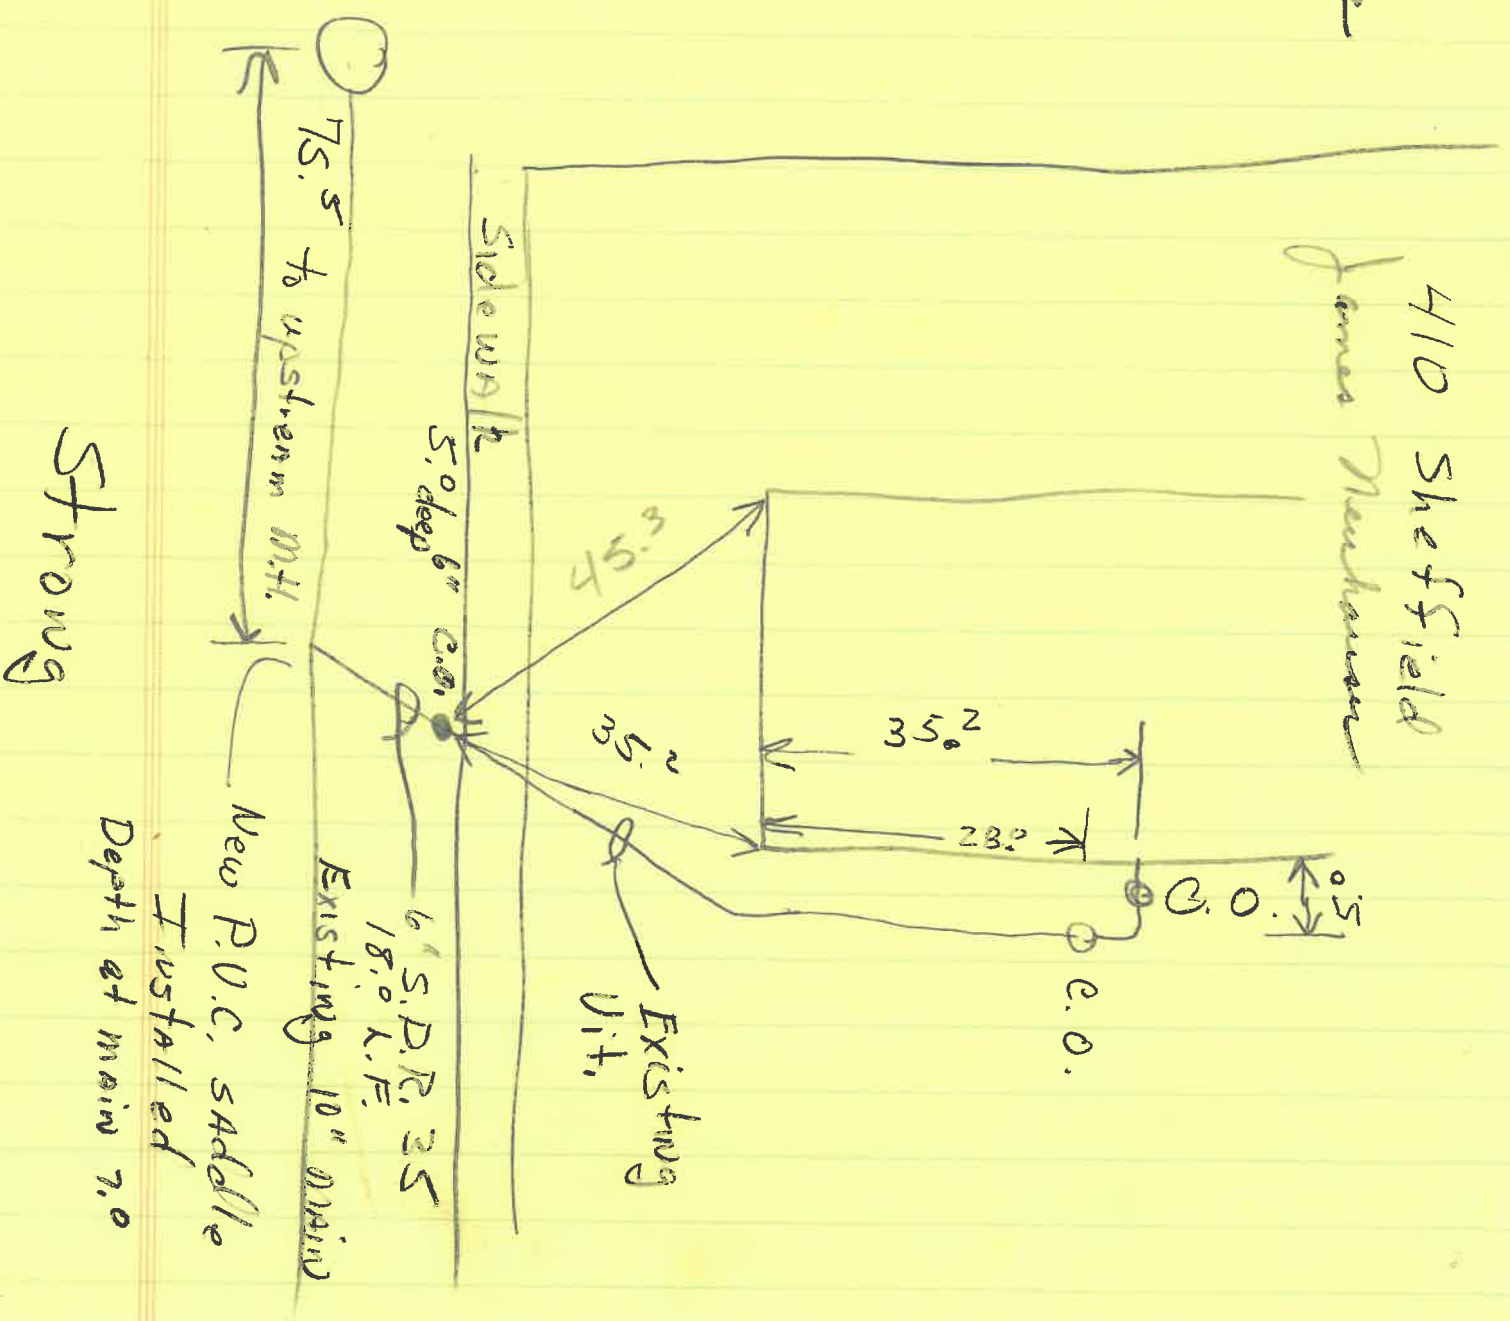 410 Sheffield
James
0.5
C.O.
C.O.
35.2
28.0
Existing
Vit.
35.2
45.3
Sidewalk
5.0 deep 6" C.O.
6" S.D.R. 35
18.0 L.F.
Existing 10" main
75.5 to upstream M.H.
New P.V.C. saddle
Installed
Depth at main 7.0
Strong